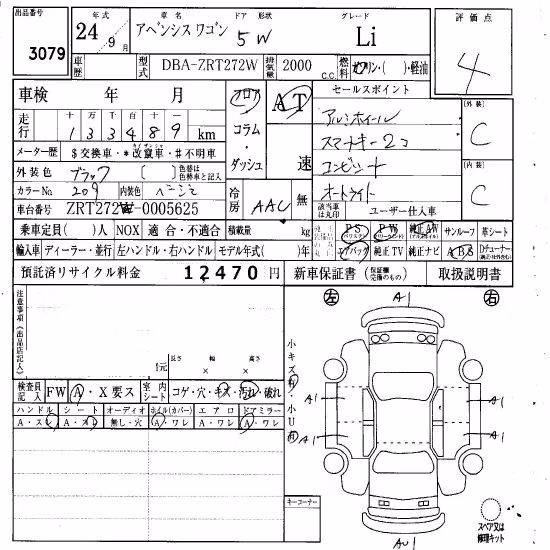 出品番号 3079
年式 24年9月
車名 アベンシスワゴン
ドア 形状 5W
グレード Li
評価点 4
車歴
型式 DBA-ZRT272W
排気量 2000 c.c.
燃料 ガソリン・( )・軽油
車検 年 月
フロア・コラム・ダッシュ
AT 速
セールスポイント
アルミホイール
スマートキー2コ
コンビシート
オートライト
外装 C
内装 C
走行 十万千百十一
133489 km
メーター歴 $交換車・*改竄車・#不明車
外装色 ブラック [ ] 色替は色替車と記入
カラーNo. 209 内装色 ベージュ
車台番号 ZRT272W-0005625
冷房 AAC 無
該当車は丸印 ユーザー仕入車
乗車定員( )人 NOX 適合・不適合 積載量 kg
PS PW 純正AW サンルーフ 革シート
輸入車 ディーラー・並行 左ハンドル・右ハンドル モデル年式( )年
エアバッグ 純正TV 純正ナビ ABS
預託済リサイクル料金 12470円
新車保証書 (保証欄完備のもの) 取扱説明書
注意事項(出品店記入)
1元
長さ × 幅 × 高さ
検査員記入 FW A・X要ス 室内シート コゲ・穴・キズ・汚れ・破れ
ハンドル シート オーディオ ホイル(カバー) エアロ ドアミラー
A・スレ A・スレ 無し・穴 A・ワレ A・ワレ A・ワレ
小キズ有・小U有
キーコーナー
左 右
A1
A1 A1
A1 A1
AU1
スペア又は修理キット